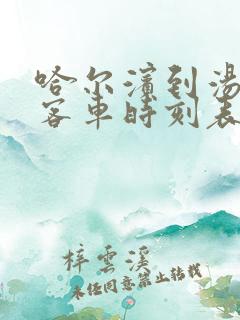 哈尔滨到汤
客车时刻表
梓云溪
未经同意禁止转载